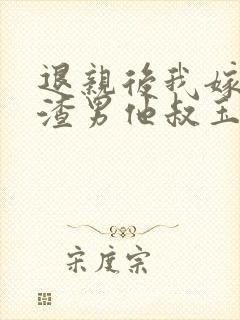 退親後我嫁
渣男他叔王
宋度宗